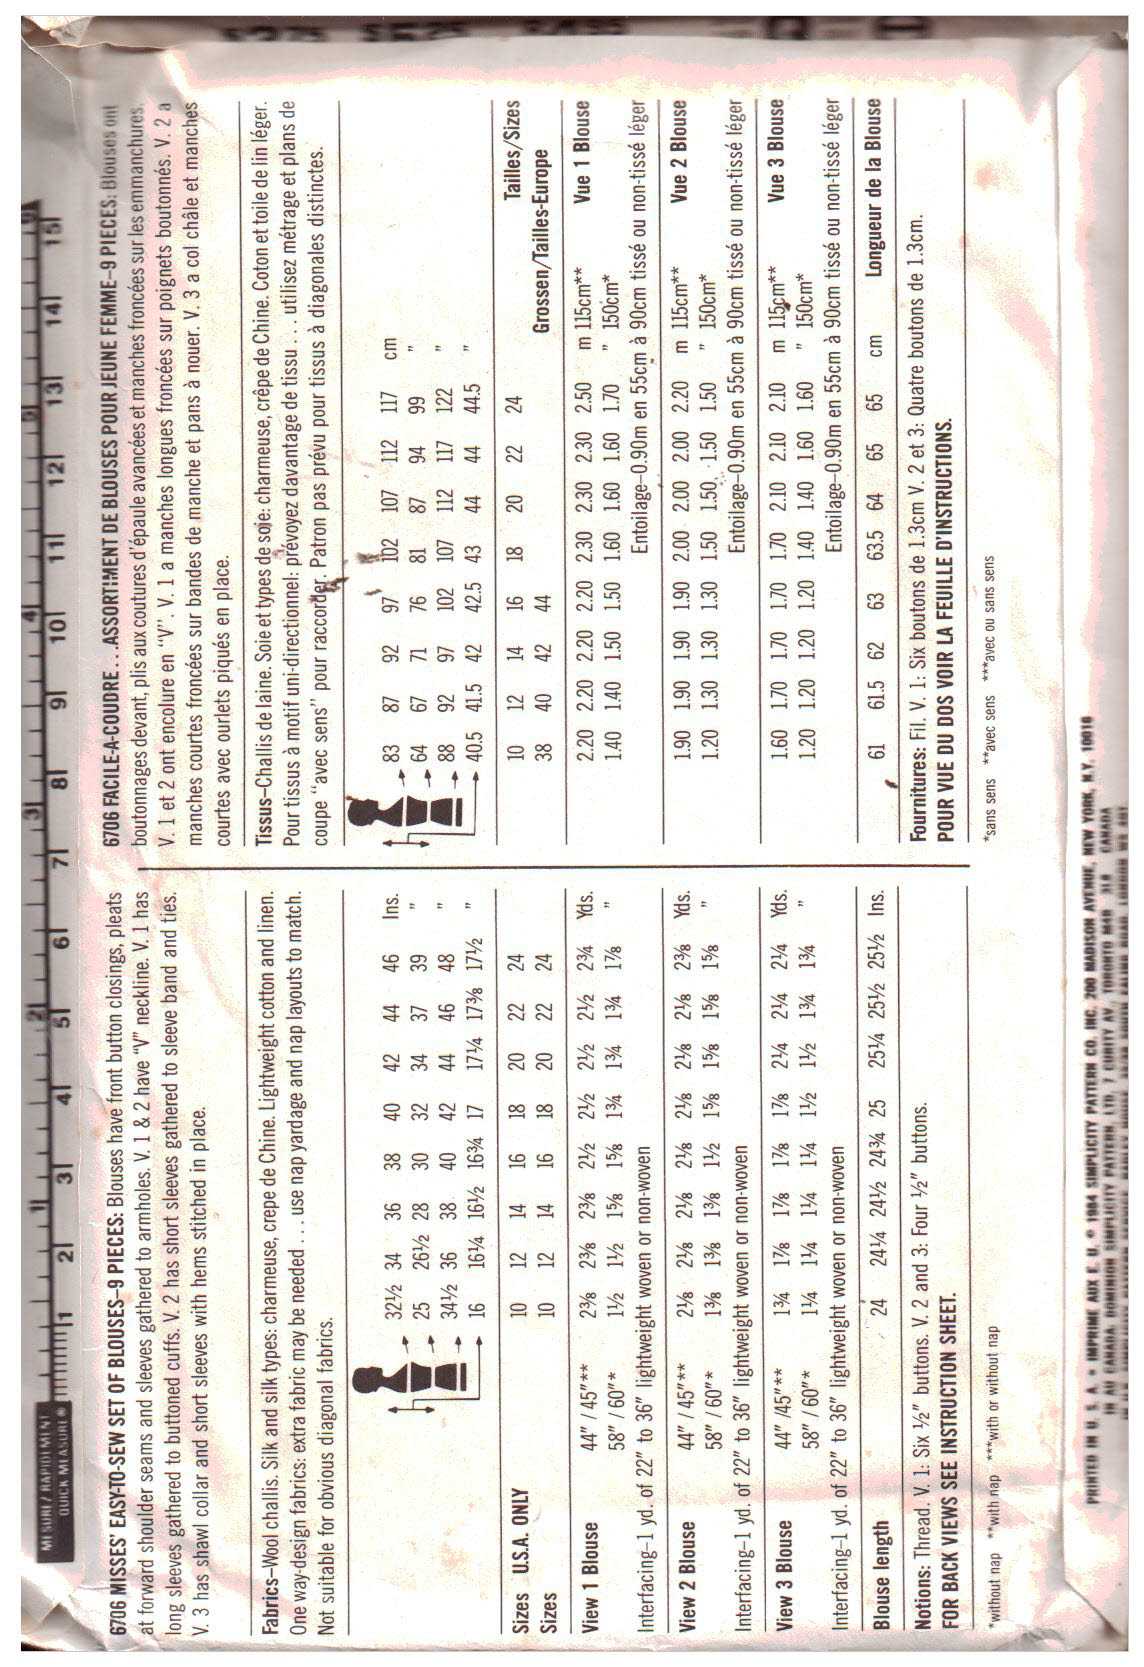 MESURE / RAPIDEMENT
QUICK MEASURE®
1 2 3 4 5 6 7 8 9 10 11 12 13 14 15
6706 MISSES' EASY-TO-SEW SET OF BLOUSES–9 PIECES: Blouses have front button closings, pleats
at forward shoulder seams and sleeves gathered to armholes. V. 1 & 2 have "V" neckline. V. 1 has
long sleeves gathered to buttoned cuffs. V. 2 has short sleeves gathered to sleeve band and ties.
V. 3 has shawl collar and short sleeves with hems stitched in place.
Fabrics–Wool challis. Silk and silk types: charmeuse, crepe de Chine. Lightweight cotton and linen.
One way-design fabrics: extra fabric may be needed . . . use nap yardage and nap layouts to match.
Not suitable for obvious diagonal fabrics.
32½ 34 36 38 40 42 44 46 Ins.
25 26½ 28 30 32 34 37 39 "
34½ 36 38 40 42 44 46 48 "
16 16¼ 16½ 16¾ 17 17¼ 17⅜ 17½ "
Sizes U.S.A. ONLY 10 12 14 16 18 20 22 24
Sizes 10 12 14 16 18 20 22 24
View 1 Blouse 44" / 45"** 2⅜ 2⅜ 2⅜ 2½ 2½ 2½ 2½ 2¾ Yds.
58" / 60"* 1½ 1½ 1⅝ 1⅝ 1¾ 1¾ 1¾ 1⅞ "
Interfacing–1 yd. of 22" to 36" lightweight woven or non-woven
View 2 Blouse 44" / 45"** 2⅛ 2⅛ 2⅛ 2⅛ 2⅛ 2⅛ 2⅛ 2⅜ Yds.
58" / 60"* 1⅜ 1⅜ 1⅜ 1½ 1⅝ 1⅝ 1⅝ 1⅝ "
Interfacing–1 yd. of 22" to 36" lightweight woven or non-woven
View 3 Blouse 44" /45"** 1¾ 1⅞ 1⅞ 1⅞ 1⅞ 2¼ 2¼ 2¼ Yds.
58" / 60"* 1¼ 1¼ 1¼ 1¼ 1½ 1½ 1¾ 1¾ "
Interfacing–1 yd. of 22" to 36" lightweight woven or non-woven
Blouse length 24 24¼ 24½ 24¾ 25 25¼ 25½ 25½ Ins.
Notions: Thread. V. 1: Six ½" buttons. V. 2 and 3: Four ½" buttons.
FOR BACK VIEWS SEE INSTRUCTION SHEET.
*without nap **with nap ***with or without nap
6706 FACILE-A-COUDRE . . . ASSORTIMENT DE BLOUSES POUR JEUNE FEMME–9 PIECES: Blouses ont
boutonnages devant, plis aux coutures d'épaule avancées et manches froncées sur les emmanchures.
V. 1 et 2 ont encolure en "V". V. 1 a manches longues froncées sur poignets boutonnés. V. 2 a
manches courtes froncées sur bandes de manche et pans à nouer. V. 3 a col châle et manches
courtes avec ourlets piqués en place.
Tissus–Challis de laine. Soie et types de soie: charmeuse, crêpe de Chine. Coton et toile de lin léger.
Pour tissus à motif uni-directionnel: prévoyez davantage de tissu . . . utilisez métrage et plans de
coupe "avec sens" pour raccorder. Patron pas prévu pour tissus à diagonales distinctes.
83 87 92 97 102 107 112 117 cm
64 67 71 76 81 87 94 99 "
88 92 97 102 107 112 117 122 "
40.5 41.5 42 42.5 43 44 44 44.5 "
10 12 14 16 18 20 22 24 Tailles/Sizes
38 40 42 44 Grossen/Tailles-Europe
2.20 2.20 2.20 2.20 2.30 2.30 2.30 2.50 m 115cm** Vue 1 Blouse
1.40 1.40 1.50 1.50 1.60 1.60 1.60 1.70 " 150cm*
Entoilage–0.90m en 55cm à 90cm tissé ou non-tissé léger
1.90 1.90 1.90 1.90 2.00 2.00 2.00 2.20 m 115cm** Vue 2 Blouse
1.20 1.30 1.30 1.30 1.50 1.50 1.50 1.50 " 150cm*
Entoilage–0.90m en 55cm à 90cm tissé ou non-tissé léger
1.60 1.70 1.70 1.70 1.70 2.10 2.10 2.10 m 115cm** Vue 3 Blouse
1.20 1.20 1.20 1.20 1.40 1.40 1.60 1.60 " 150cm*
Entoilage–0.90m en 55cm à 90cm tissé ou non-tissé léger
61 61.5 62 63 63.5 64 65 65 cm Longueur de la Blouse
Fournitures: Fil. V. 1: Six boutons de 1.3cm V. 2 et 3: Quatre boutons de 1.3cm.
POUR VUE DU DOS VOIR LA FEUILLE D'INSTRUCTIONS.
*sans sens **avec sens ***avec ou sans sens
PRINTED IN U. S. A. • IMPRIME AUX E. U. © 1984 SIMPLICITY PATTERN CO. INC. 200 MADISON AVENUE, NEW YORK, N.Y. 10016
IN AU CANADA: DOMINION SIMPLICITY PATTERN, LTD. 7 CURITY AV., TORONTO M4B 318 CANADA